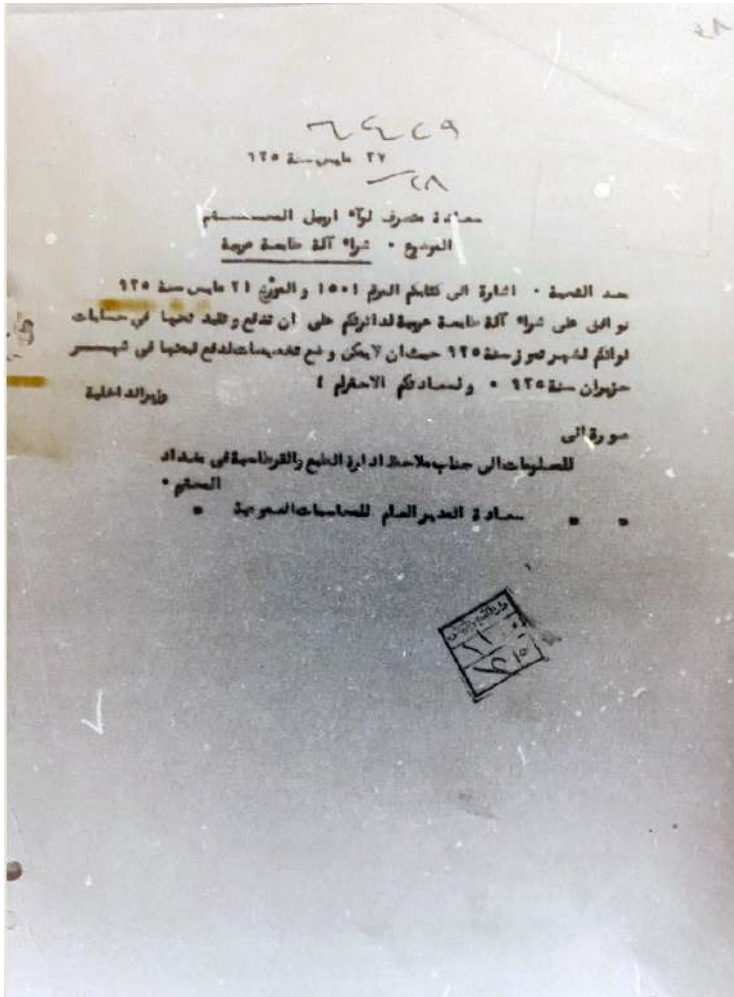 ٢٨
٦٤٢٩
٢٧ مايس سنة ٩٢٥
٢٨
سعادة متصرف لوآء اربيل المحتـــــرم
الموضوع ٠ شراء آلة طابعة عربية
بعد التحية ٠ اشارة الى كتابكم المرقم ١٥٠١ والمؤرخ ٢١ مايس سنة ٩٢٥
نوافق على شراء آلة طابعة عربية لدائرتكم على ان تدفع وتقيد ثمنها في حسابات
لوائكم لشهر تموز سنة ٩٢٥ حيث ان لا يمكن وضع تخصيصات لدفع قيمتها في شهـــر
حزيران سنة ٩٢٥ ٠ ولسعادتكم الاحترام ؛
وزير الداخلية
صورة الى
للمعلومات الى جناب ملاحظ ادارة الطبع والقرطاسية في بغداد
المحترم ٠
" " سعادة المدير العام للمحاسبات العمومية "